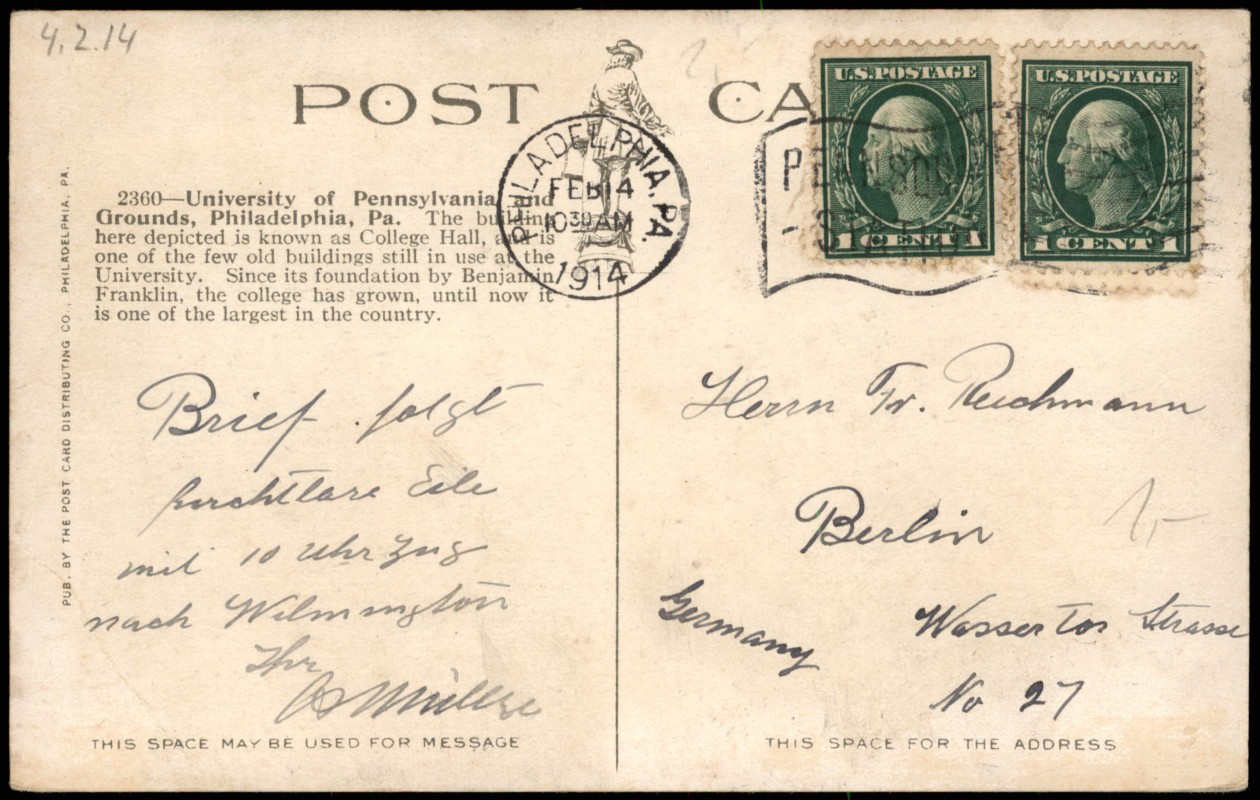 4.2.14
POST CA
U.S.POSTAGE
1 CENT 1
U.S.POSTAGE
1 CENT 1
PHILADELPHIA, PA.
FEB 14
10 30 AM
1914
2360—University of Pennsylvania, and
Grounds, Philadelphia, Pa. The building
here depicted is known as College Hall, and is
one of the few old buildings still in use at the
University. Since its foundation by Benjamin
Franklin, the college has grown, until now it
is one of the largest in the country.
PUB. BY THE POST CARD DISTRIBUTING CO., PHILADELPHIA, PA.
Brief folgt
furchtbare Eile
mit 10 Uhr Zug
nach Wilmington
Ihr
Müller
THIS SPACE MAY BE USED FOR MESSAGE
Herrn Fr. Reichmann
Berlin
Germany
Wasser tor Strasse
No 27
1,-
THIS SPACE FOR THE ADDRESS